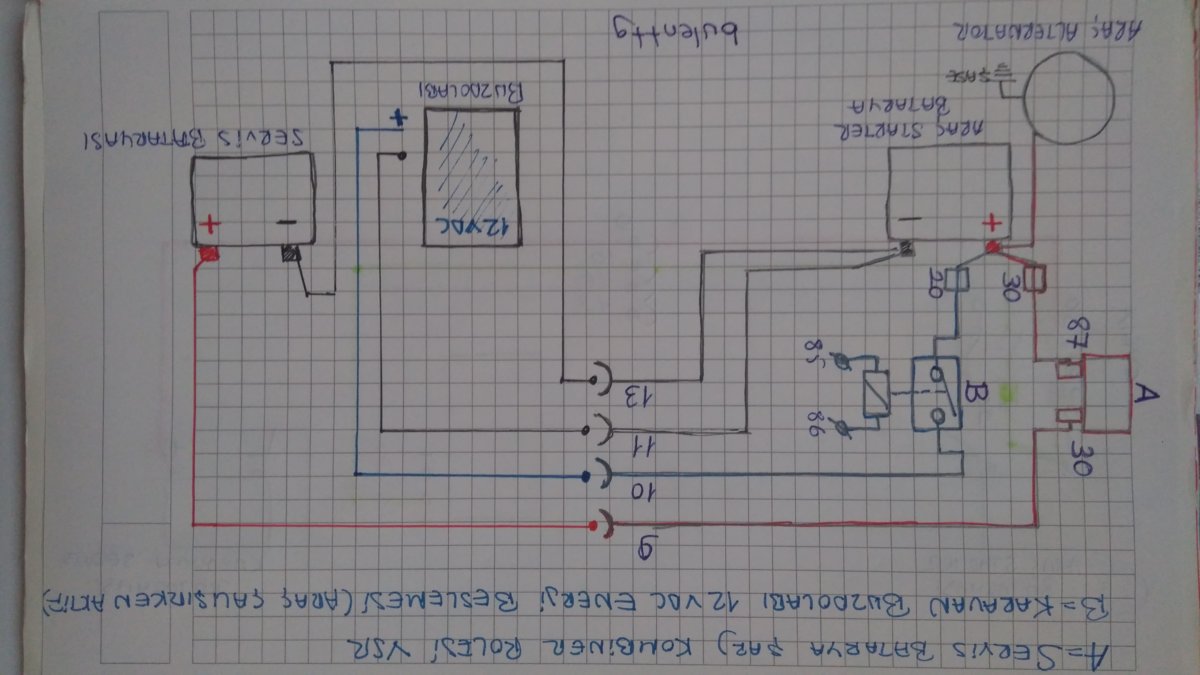 A=SERVİS BATARYA ŞARJ KOMBİNER ROLESİ VSR
B=KARAVAN BUZDOLABI 12 VDC ENERJİ BESLEMESİ (ARAÇ ÇALIŞIRKEN AKTİF)
9
10
30
11
86
A
B
13
85
87
30
20
+
-
-
+
12VDC
ARAÇ STARTER
BATARYA
SERVİS BATARYASI
+
BUZDOLABI
ŞASE
ARAÇ ALTERNATOR
bulenttg